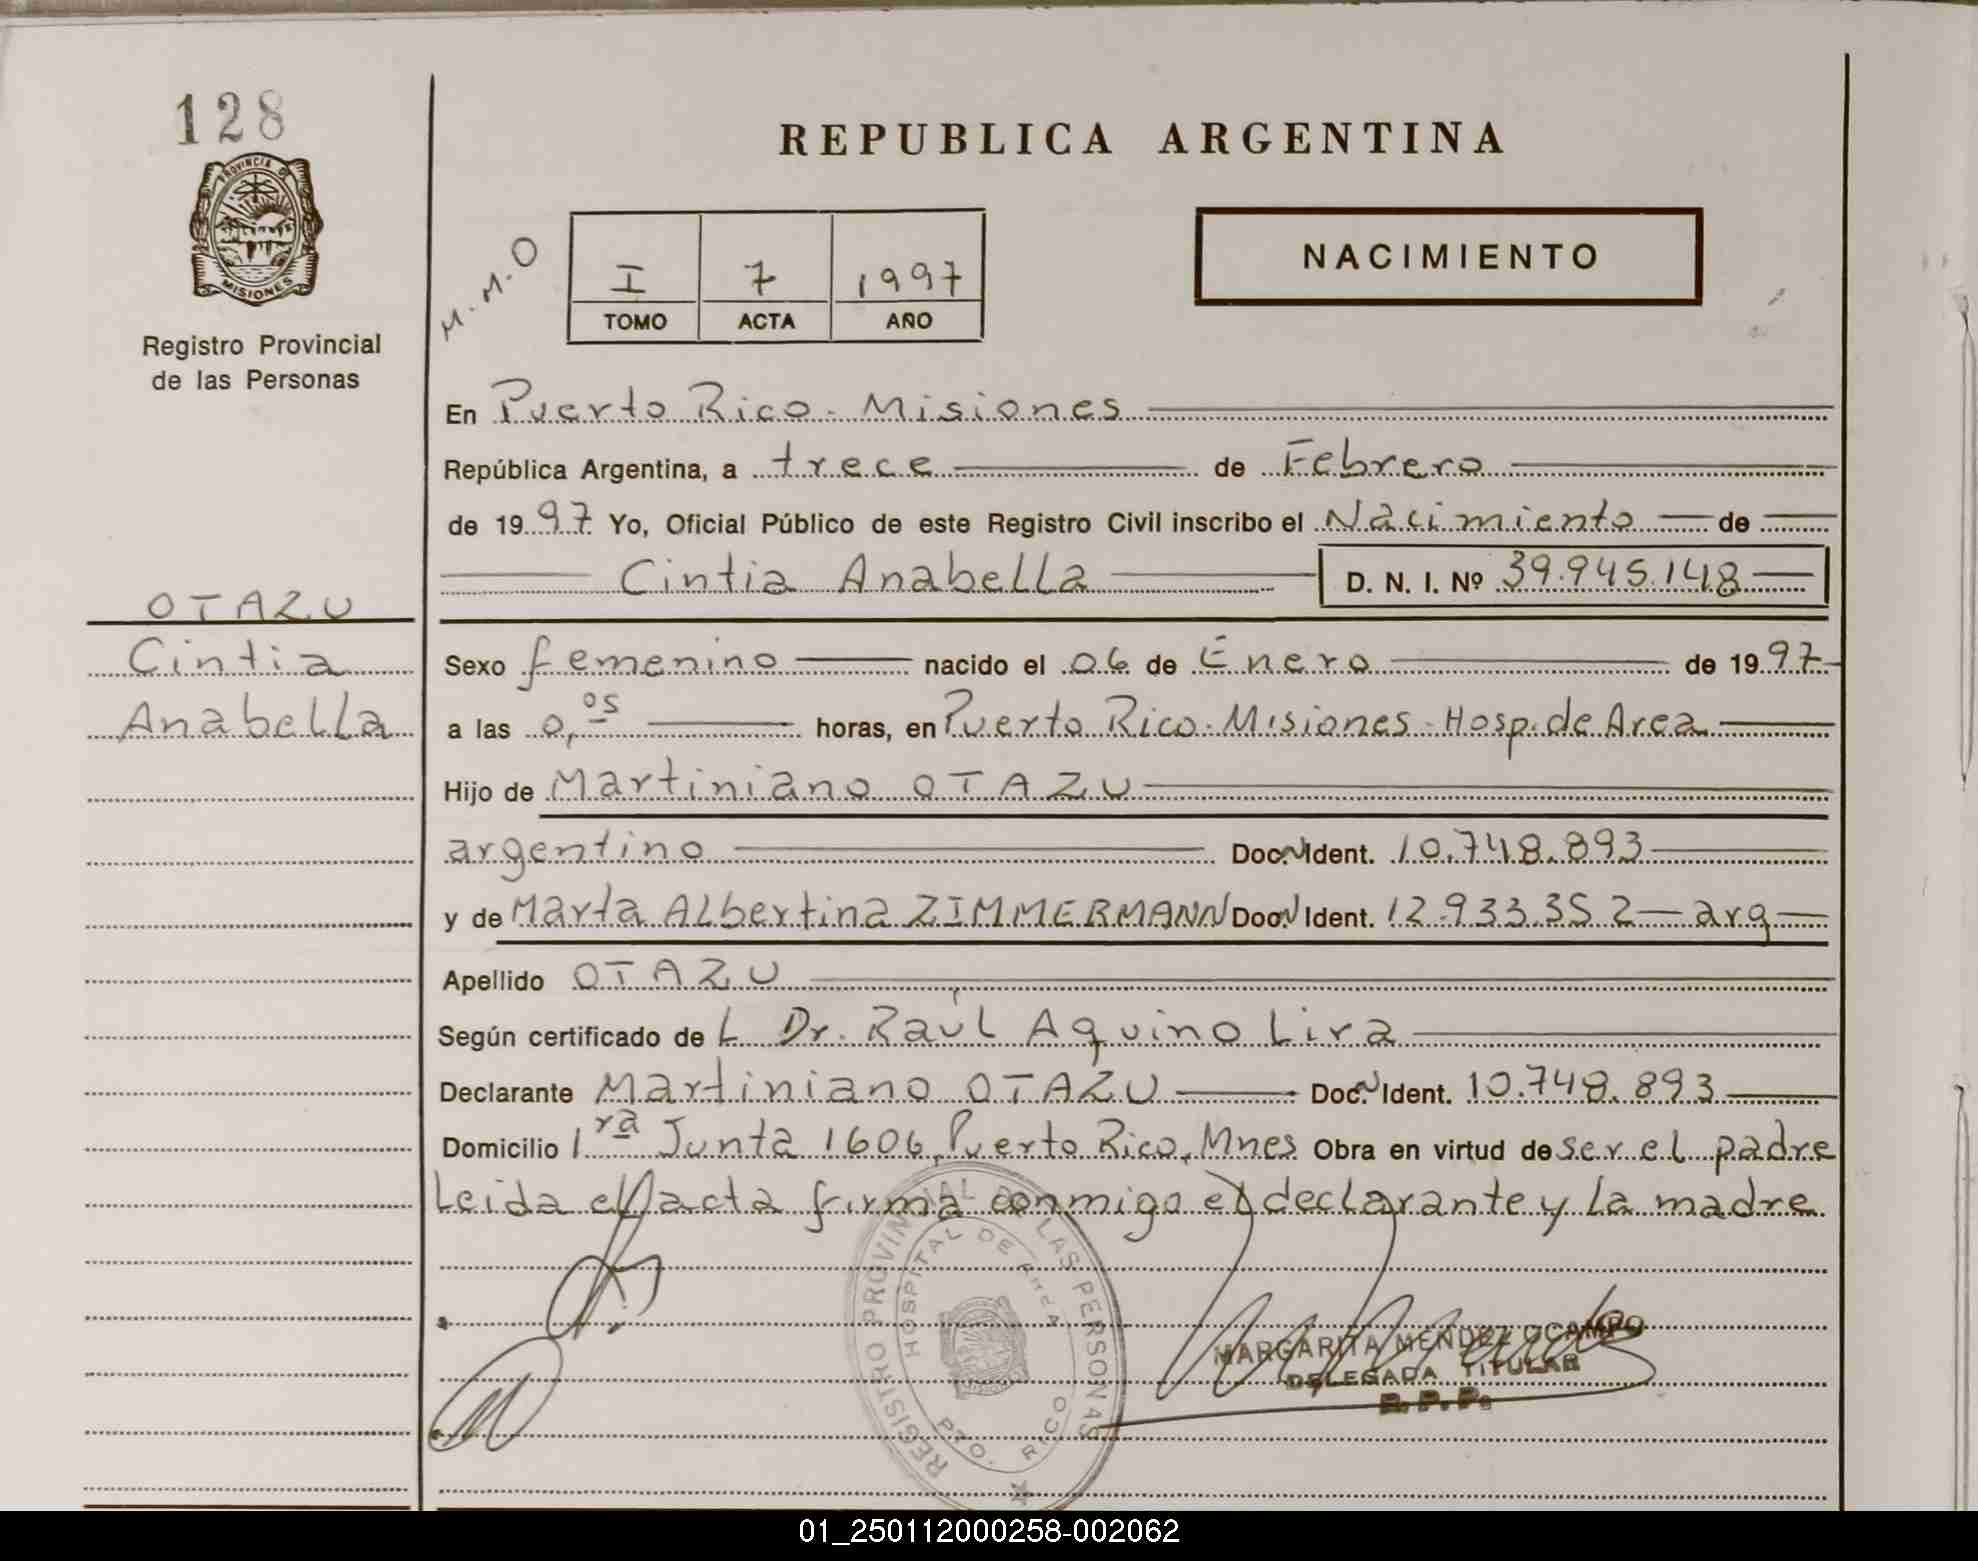 128
PROVINCIA DE
MISIONES
Registro Provincial
de las Personas
REPUBLICA ARGENTINA
M.M.O
I 7 1997
TOMO ACTA AÑO
NACIMIENTO
En Puerto Rico - Misiones
República Argentina, a trece de Febrero
de 1997 Yo, Oficial Público de este Registro Civil inscribo el Nacimiento de
Cintia Anabella D. N. I. Nº 39.945.148
OTAZU
Cintia
Anabella
Sexo femenino nacido el 06 de Enero de 1997
a las 0,05 horas, en Puerto Rico - Misiones - Hosp. de Area
Hijo de Martiniano OTAZU
argentino Doc. Ident. 10.748.893
y de Marta Albertina ZIMMERMANN Doc. Ident. 12.933.352 - arg
Apellido OTAZU
Según certificado de L Dr. Raúl Aquino Lira
Declarante Martiniano OTAZU Doc. Ident. 10.748.893
Domicilio 1ra Junta 1606, Puerto Rico, Mnes Obra en virtud de ser el padre
Leida el acta firma conmigo el declarante y la madre
REGISTRO PROVINCIAL DE LAS PERSONAS
HOSPITAL DE AREA
PTO. RICO
MARGARITA MENDEZ OCAMPO
DELEGADA TITULAR
R.P.P.
01_250112000258-002062